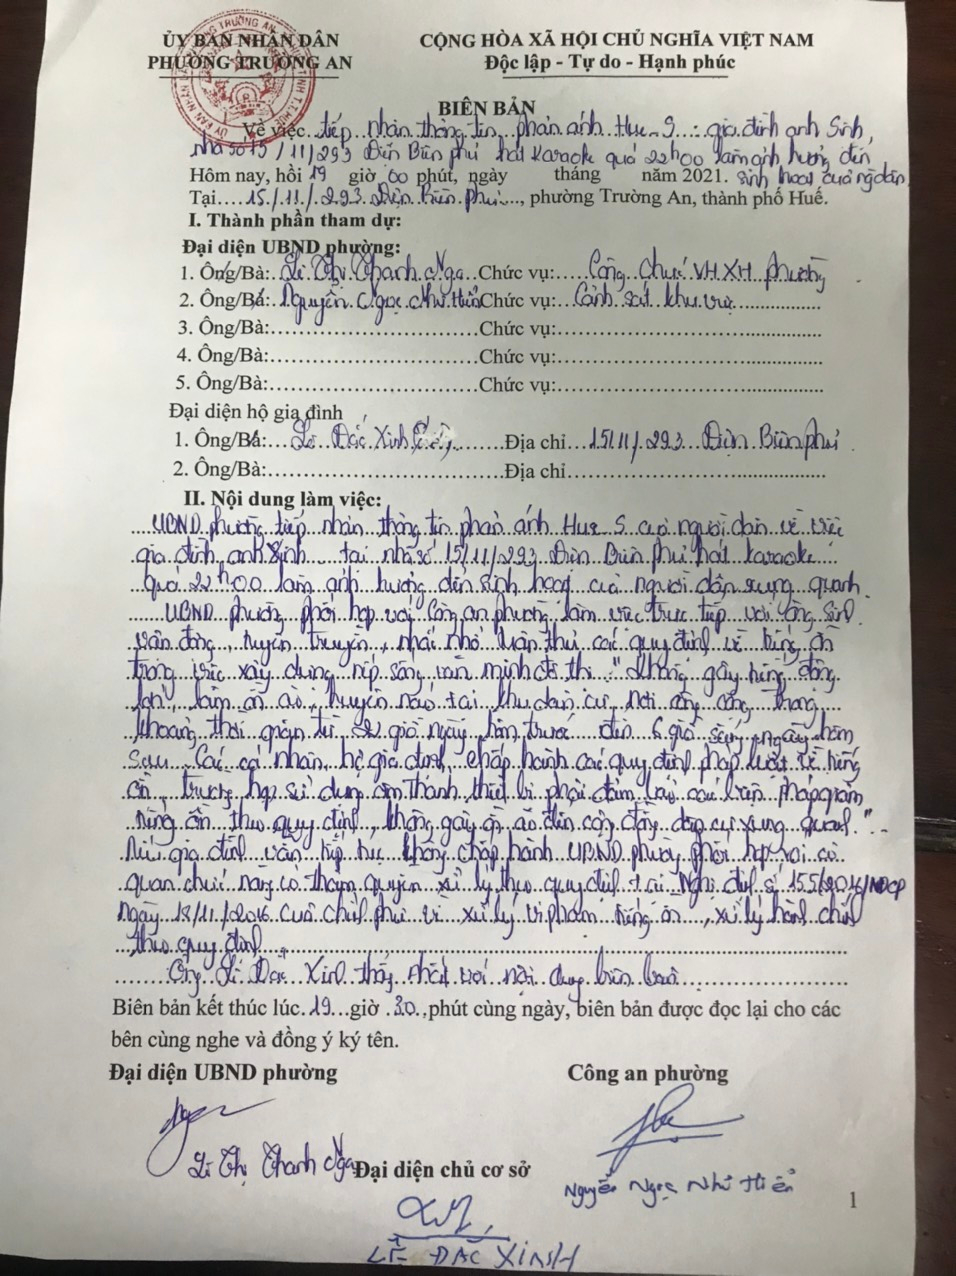 ỦY BAN NHÂN DÂN
PHƯỜNG TRƯỜNG AN
CỘNG HÒA XÃ HỘI CHỦ NGHĨA VIỆT NAM
Độc lập - Tự do - Hạnh phúc
BIÊN BẢN
Về việc tiếp nhận thông tin phản ánh Hue-S : gia đình anh Sinh,
nhà số 15/11/293 Điện Biên Phủ hát Karaok quá 22h00 làm ảnh hưởng đến
Hôm nay, hồi 19 giờ 00 phút, ngày tháng năm 2021. sinh hoạt của ng dân
Tại 15/11/293 Điện Biên Phủ, phường Trường An, thành phố Huế.
I. Thành phần tham dự:
Đại diện UBND phường:
1. Ông/Bà: Lê Thị Thanh Nga Chức vụ: Công chức VH.XH phường
2. Ông/Bà: Nguyễn Ngọc Như Hiển Chức vụ: Cảnh sát khu vực
3. Ông/Bà: Chức vụ:
4. Ông/Bà: Chức vụ:
5. Ông/Bà: Chức vụ:
Đại diện hộ gia đình
1. Ông/Bà: Lê Đắc Xinh Địa chỉ 15/11/293 Điện Biên Phủ
2. Ông/Bà: Địa chỉ
II. Nội dung làm việc:
UBND phường tiếp nhận thông tin phản ánh Hue S của người dân về việc
gia đình anh Sinh tại nhà số 15/11/293 Điện Biên Phủ hát karaoke
quá 22h00 làm ảnh hưởng đến sinh hoạt của người dân xung quanh.
UBND phường phối hợp với Công an phường làm việc trực tiếp với ông Sinh
vận động, tuyên truyền, nhắc nhở tuân thủ các quy định về tiếng ồn
trong việc xây dựng nếp sống văn minh đô thị "Không gây tiếng động
lớn, làm ồn ào, huyên náo tại khu dân cư, nơi công cộng trong
khoảng thời gian từ 22 giờ ngày hôm trước đến 6 giờ sáng ngày hôm
sau. Các cá nhân, hộ gia đình chấp hành các quy định pháp luật về tiếng
ồn, trường hợp sử dụng âm thanh, thiết bị phải đảm bảo các biện pháp giảm
tiếng ồn theo quy định, không gây ồn ào đến cộng đồng dân cư xung quanh".
Nếu gia đình vẫn tiếp tục không chấp hành UBND phường phối hợp với cơ
quan chức năng có thẩm quyền xử lý theo quy định tại Nghị định số 155/2016/NĐCP
ngày 18/11/2016 của chính phủ về xử lý vi phạm tiếng ồn, xử lý hành chính
theo quy định.
Ông Lê Đắc Xinh thống nhất với nội dung biên bản.
Biên bản kết thúc lúc 19 giờ 30, phút cùng ngày, biên bản được đọc lại cho các
bên cùng nghe và đồng ý ký tên.
Đại diện UBND phường
Công an phường
Lê Thị Thanh Nga
Nguyễn Ngọc Như Hiển
Đại diện chủ cơ sở
LÊ ĐẮC XINSH
1